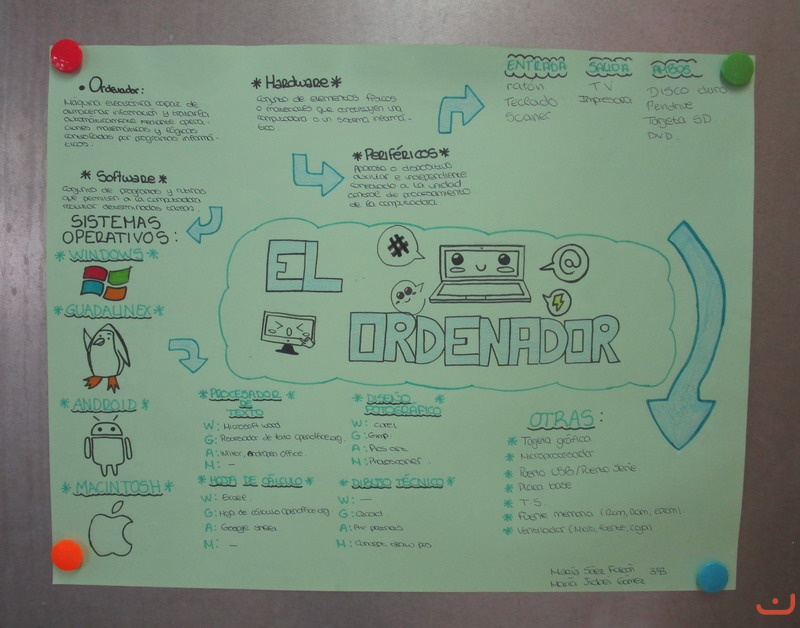 • Ordenador:
Máquina electrónica capaz de
almacenar información y tratarla
automáticamente mediante opera-
ciones matemáticas y lógicas
controladas por programas informá-
ticos.
* Hardware *
Conjunto de elementos físicos
o materiales que constituyen una
computadora o un sistema informá-
tico.
ENTRADA
ratón
Teclado
Scaner
SALIDA
TV
Impresora
AMBOS
DISCO duro
Pendrive
Tarjeta SD
DVD.
* PERIFÉRICOS *
Aparato o dispositivo
auxiliar e independiente
conectado a la unidad
central de procesamiento
de la computadora.
* Software *
Conjunto de programas y rutinas
que permiten a la computadora
realizar determinadas tareas.
SISTEMAS
OPERATIVOS:
* WINDOWS *
* GUADALINEX *
* ANDROID *
* MACINTOSH *
EL
#
@
ORDENADOR
* PROCESADOR *
DE
TEXTO
W: Microsoft word
G: Procesador de texto openoffice.org.
A: office.
M: —
* HOJA DE CÁLCULO *
W: Excel.
G: Hoja de cálculo openoffice.org
A: Google
M: —
* DISEÑO *
FOTOGRÁFICO
W: Corel
G: Gimp.
A: Pics art
M:
* DIBUJO TÉCNICO *
W: —
G:
A:
M: Concept draw pro
OTRAS:
* Tarjeta gráfica
* Microprocesador
* Puerto USB/Puerto Serie
* Placa base
* T.S
* Fuente memoria (Ram, Rom,
* Ventilador (Micro, fuente, caja)
María Sáez 3ºB
María Gómez